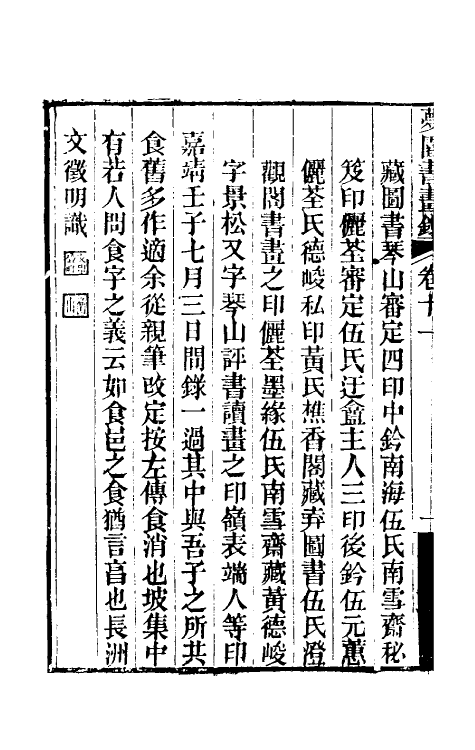 夢園書畫錄 卷十一
藏圖書琴山審定四印中鈐南海伍氏南雪齋秘
笈印儷荃審定伍氏迂盦主人三印後鈐伍元蕙
儷荃氏德峻私印黃氏樵香閣藏弆圖書伍氏澄
觀閣書畫之印儷荃墨緣伍氏南雪齋藏黃德峻
字景松又字琴山評書讀畫之印嶺表端人等印
嘉靖壬子七月三日閒錄一過其中與吾子之所共
食舊多作適余從親筆改定按左傳食消也坡集中
有若人問食字之義云如食邑之食猶言享也長洲
文徵明識